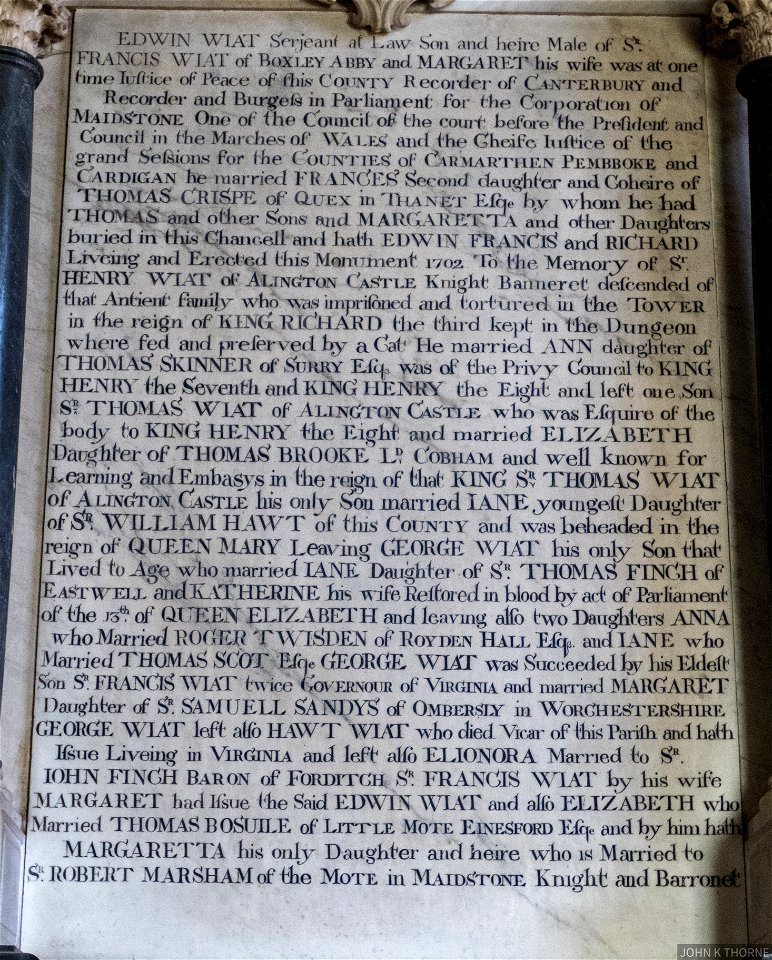 EDWIN WIAT Serjeant at Law Son and heire Male of Sr.
FRANCIS WIAT of BOXLEY ABBY and MARGARET his wife was at one
time Iuſtice of Peace of this COUNTY Recorder of CANTERBURY and
Recorder and Burgeſs in Parliament for the Corporation of
MAIDSTONE One of the Council of the court before the Preſident and
Council in the Marches of WALES and the Cheife Iuſtice of the
grand Seſsions for the COUNTIES of CARMARTHEN PEMBBOKE and
CARDIGAN he married FRANCES Second daughter and Coheire of
THOMAS CRISPE of QUEX in THANET Eſqe by whom he had
THOMAS and other Sons and MARGARETTA and other Daughters
buried in this Chancell and hath EDWIN FRANCIS and RICHARD
Liveing and Erected this Monument 1702 To the Memory of Sr.
HENRY WIAT of ALINGTON CASTLE Knight Banneret deſcended of
that Antient family who was impriſoned and tortured in the TOWER
in the reign of KING RICHARD the third kept in the Dungeon
where fed and preſerved by a Cat He married ANN daughter of
THOMAS SKINNER of SURRY Eſqr. was of the Privy Council to KING
HENRY the Seventh and KING HENRY the Eight and left one Son
Sr. THOMAS WIAT of ALINGTON CASTLE who was Eſquire of the
body to KING HENRY the Eight and married ELIZABETH
Daughter of THOMAS BROOKE LD. COBHAM and well known for
Learning and Embasys in the reign of that KING SR. THOMAS WIAT
of ALINGTON CASTLE his only Son married IANE youngeſt Daughter
of SR. WILLIAM HAWT of this COUNTY and was beheaded in the
reign of QUEEN MARY Leaving GEORGE WIAT his only Son that
Lived to Age who married IANE Daughter of SR. THOMAS FINCH of
EASTWELL and KATHERINE his wife Reſtored in blood by act of Parliament
of the 13th of QUEEN ELIZABETH and leaving alſo two Daughters ANNA
who Married ROGER TWISDEN of ROYDEN HALL Eſqr. and IANE who
Married THOMAS SCOT Eſqe GEORGE WIAT was Succeeded by his Eldeſt
Son SR. FRANCIS WIAT twice GOVERNOUR of VIRGINIA and married MARGARET
Daughter of SR. SAMUELL SANDYS of OMBERSLY in WORCHESTERSHIRE
GEORGE WIAT left alſo HAWT WIAT who died Vicar of this Pariſh and hath
Iſsue Liveing in VIRGINIA and left alſo ELIONORA Married to SR.
IOHN FINCH BARON of FORDITCH SR. FRANCIS WIAT by his wife
MARGARET had Iſsue the Said EDWIN WIAT and alſo ELIZABETH who
Married THOMAS BOSUILE of LITTLE MOTE EINESFORD Eſqe and by him hath
MARGARETTA his only Daughter and heire who is Married to
SR. ROBERT MARSHAM of the MOTE in MAIDSTONE Knight and Barronet
JOHN K THORNE